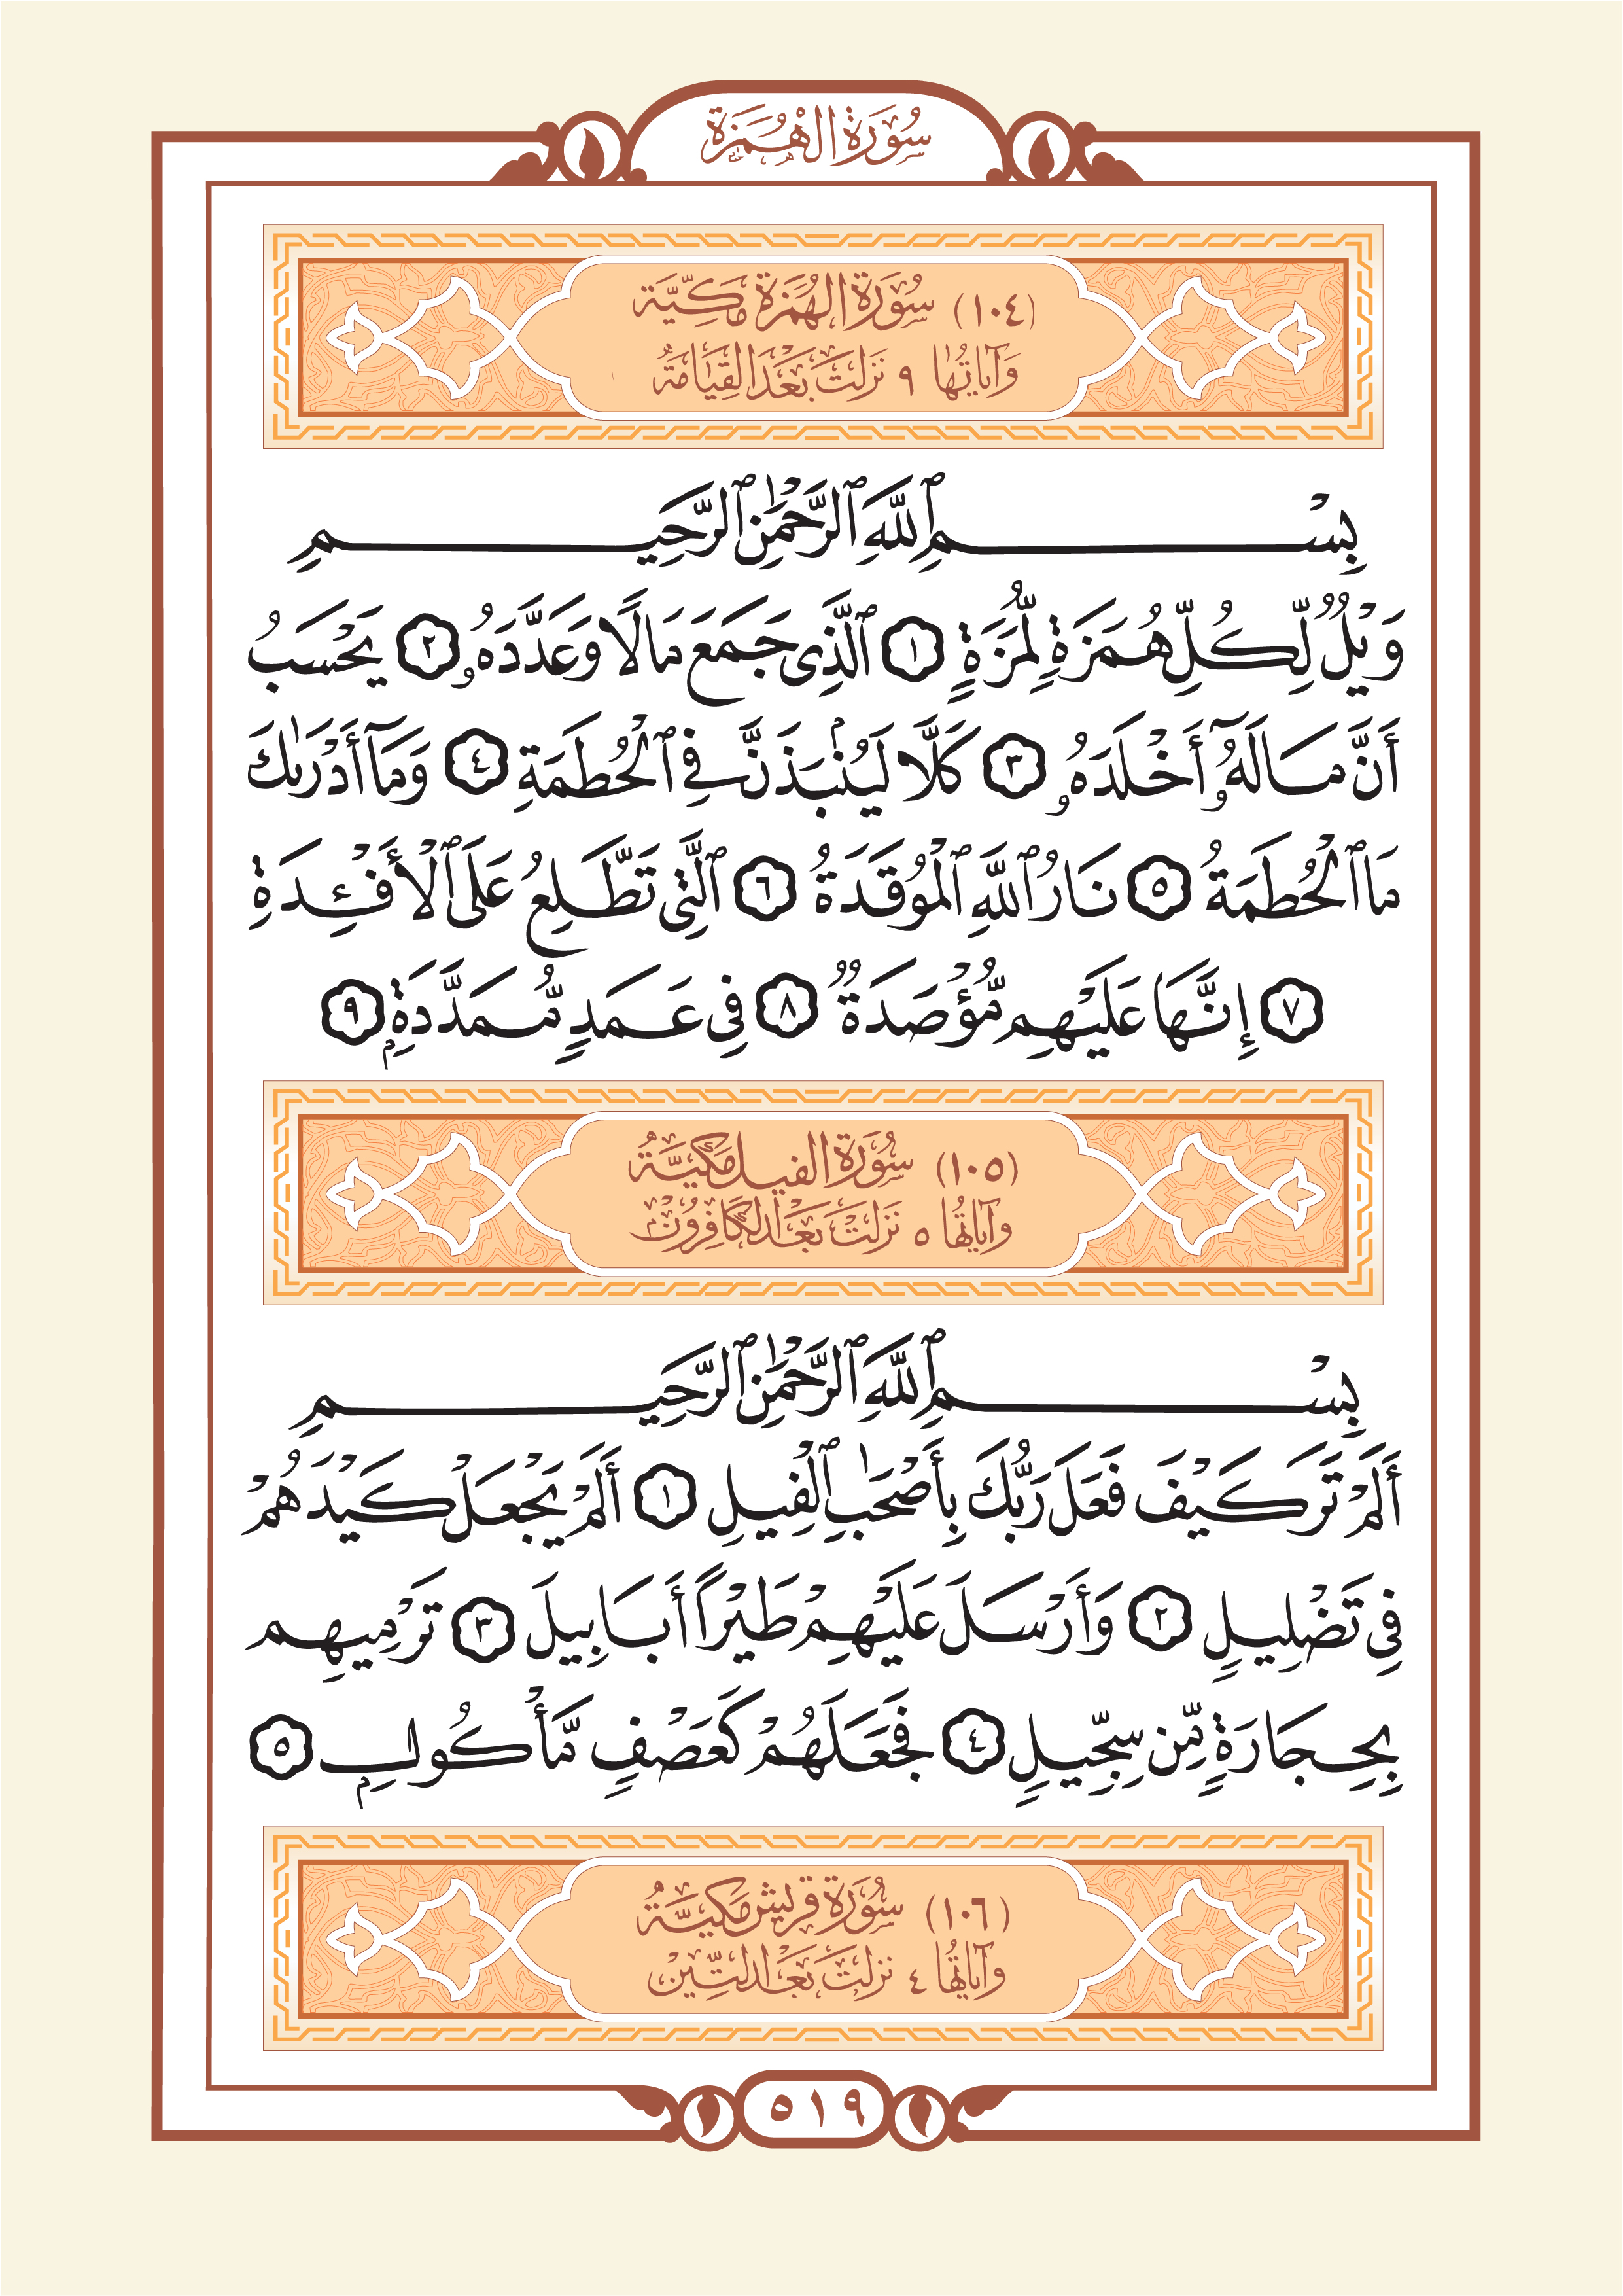 سُورَةُ الْهُمَزَة
(١٠٤) سُورَةُ الهُمَزَة مَكِّيَّة
وَآيَاتُهَا ٩ نَزَلَتْ بَعْدَ القِيَامَة
بِسْمِ ٱللَّهِ ٱلرَّحْمَٰنِ ٱلرَّحِيمِ
وَيْلٌ لِّكُلِّ هُمَزَةٍ لُّمَزَةٍ ١ ٱلَّذِى جَمَعَ مَالًا وَعَدَّدَهُۥ ٢ يَحْسَبُ
أَنَّ مَالَهُۥٓ أَخْلَدَهُۥ ٣ كَلَّا لَيُنۢبَذَنَّ فِى ٱلْحُطَمَةِ ٤ وَمَآ أَدْرَىٰكَ
مَا ٱلْحُطَمَةُ ٥ نَارُ ٱللَّهِ ٱلْمُوقَدَةُ ٦ ٱلَّتِى تَطَّلِعُ عَلَى ٱلْأَفْـِٔدَةِ
٧ إِنَّهَا عَلَيْهِم مُّؤْصَدَةٌ ٨ فِى عَمَدٍ مُّمَدَّدَةِۭ ٩
(١٠٥) سُورَةُ الفِيل مَكِّيَّةٌ
وآيَاتُهَا ٥ نَزَلَتْ بَعْدَ الكَافِرُونْ
بِسْمِ ٱللَّهِ ٱلرَّحْمَٰنِ ٱلرَّحِيمِ
أَلَمْ تَرَ كَيْفَ فَعَلَ رَبُّكَ بِأَصْحَٰبِ ٱلْفِيلِ ١ أَلَمْ يَجْعَلْ كَيْدَهُمْ
فِى تَضْلِيلٍ ٢ وَأَرْسَلَ عَلَيْهِمْ طَيْرًا أَبَابِيلَ ٣ تَرْمِيهِم
بِحِجَارَةٍ مِّن سِجِّيلٍ ٤ فَجَعَلَهُمْ كَعَصْفٍ مَّأْكُولِۭ ٥
(١٠٦) سُورَةُ قُرَيْش مَكِّيَّةٌ
وآيَاتُهَا ٤ نَزَلَتْ بَعْدَ التِّين
٥١٩